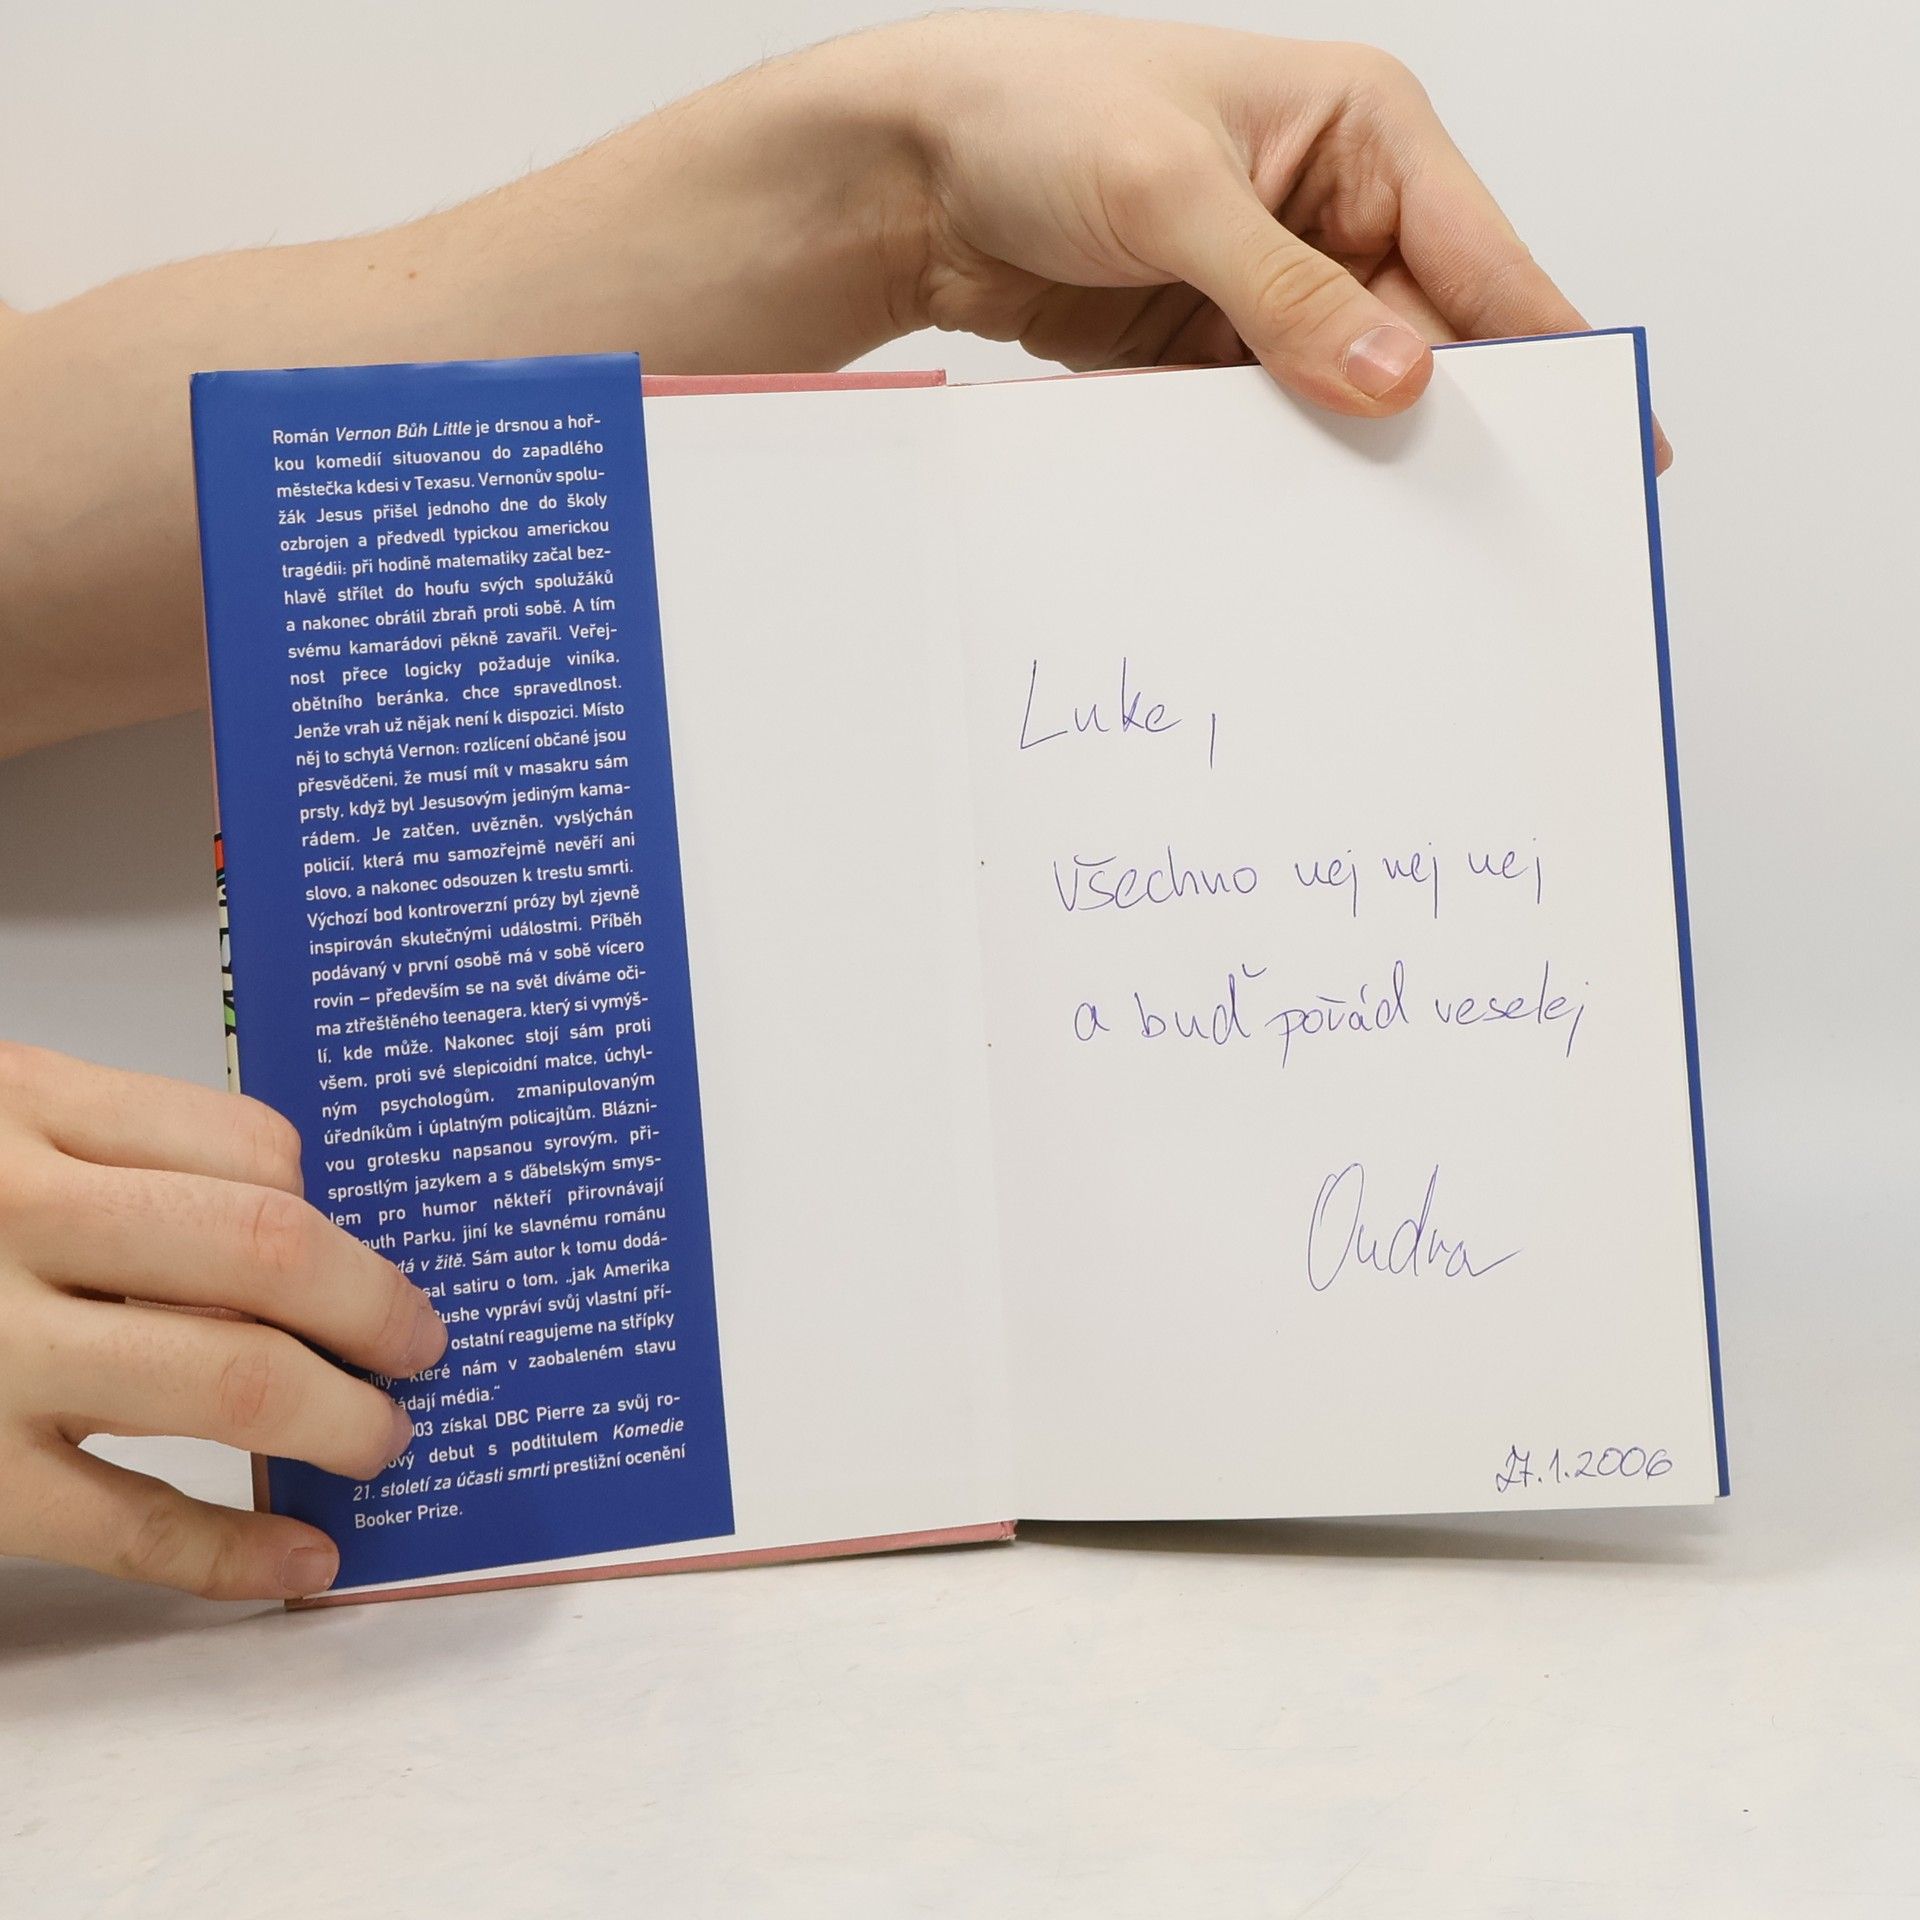 Román Vernon Bůh Little je drsnou a hoř-
kou komedií situovanou do zapadlého
městečka kdesi v Texasu. Vernonův spolu-
žák Jesus přišel jednoho dne do školy
ozbrojen a předvedl typickou americkou
tragédii: při hodině matematiky začal bez-
hlavě střílet do houfu svých spolužáků
a nakonec obrátil zbraň proti sobě. A tím
svému kamarádovi pěkně zavařil. Veřej-
nost přece logicky požaduje viníka,
obětního beránka, chce spravedlnost.
Jenže vrah už nějak není k dispozici. Místo
něj to schytá Vernon: rozlícení občané jsou
přesvědčeni, že musí mít v masakru sám
prsty, když byl Jesusovým jediným kama-
rádem. Je zatčen, uvězněn, vyslýchán
policií, která mu samozřejmě nevěří ani
slovo, a nakonec odsouzen k trestu smrti.
Výchozí bod kontroverzní prózy byl zjevně
inspirován skutečnými událostmi. Příběh
podávaný v první osobě má v sobě vícero
rovin – především se na svět díváme oči-
ma ztřeštěného teenagera, který si vymýš-
lí, kde může. Nakonec stojí sám proti
všem, proti své slepicoidní matce, úchyl-
ným psychologům, zmanipulovaným
úředníkům i úplatným policajtům. Blázni-
vou grotesku napsanou syrovým, při-
sprostlým jazykem a s ďábelským smys-
lem pro humor někteří přirovnávají
outh Parku, jiní ke slavnému románu
tá v žitě. Sám autor k tomu dodá-
sal satiru o tom, „jak Amerika
ushe vypráví svůj vlastní pří-
ostatní reagujeme na střípky
ality, které nám v zaobaleném stavu
ádají média."
003 získal DBC Pierre za svůj ro-
ový debut s podtitulem Komedie
21. století za účasti smrti prestižní ocenění
Booker Prize.
Luke,
všechno nej nej nej
a buď pořád veselej
Ondra
27.1.2006